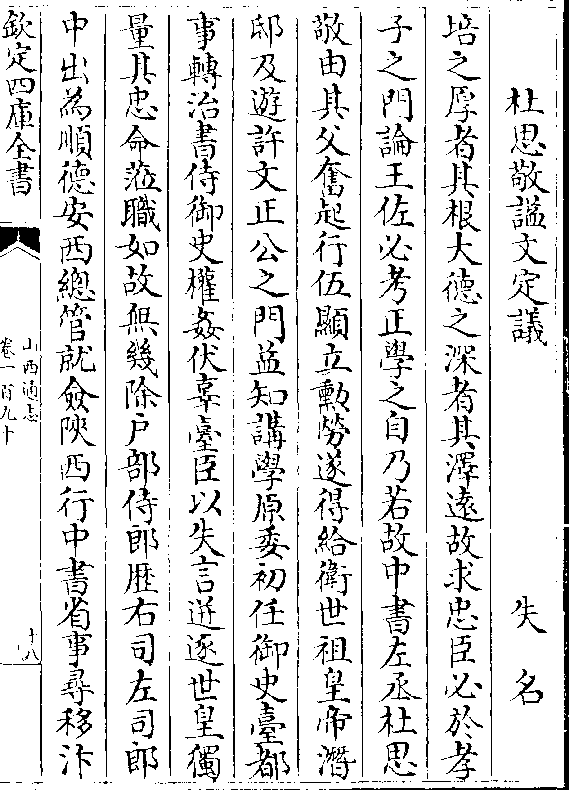 杜思敬謚文定議
失名
培之厚者其根大德之深者其澤逺故求忠臣必於孝
子之門論王佐必考正學之自乃若故中書左丞杜思
敬由其父奮起行伍顯立勲勞遂得給衛世祖皇帝潛
邸及遊許文正公之門益知講學原委初任御史臺都
事轉治書侍御史權姦伏辜臺臣以失言迸逐世皇獨
量其忠命蒞職如故無幾除户部侍郎歴右司左司郎
中出為順德安西總管就僉陜西行中書省事尋移汴
欽定四庫全書
山西通志
卷一百九十
十八